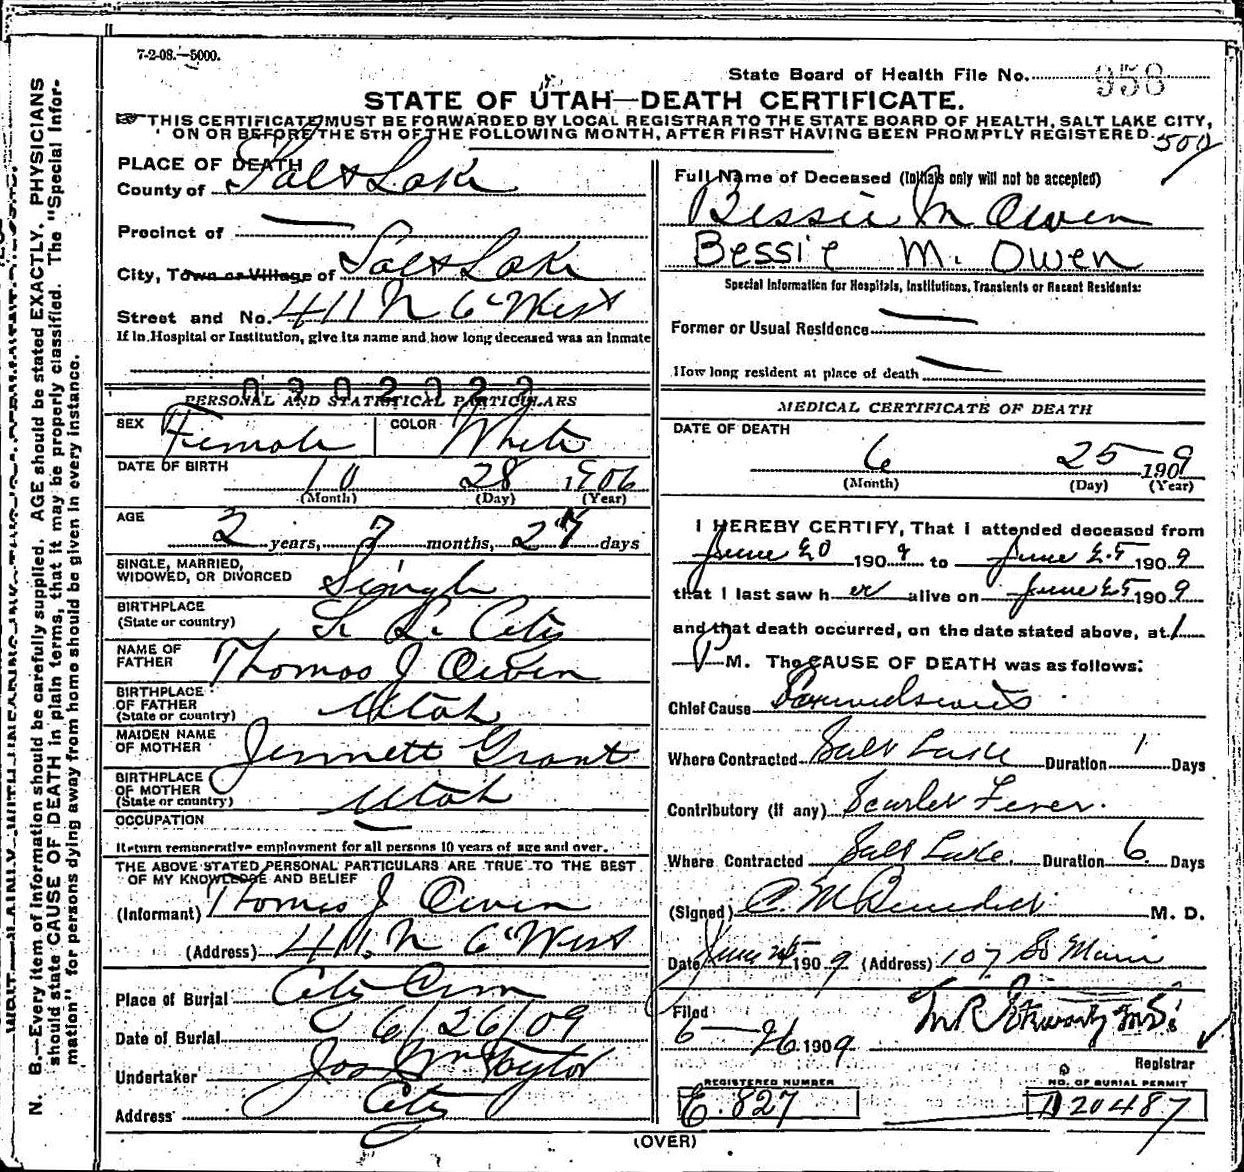 7-2-08.—5000.
State Board of Health File No. 958
STATE OF UTAH—DEATH CERTIFICATE.
THIS CERTIFICATE MUST BE FORWARDED BY LOCAL REGISTRAR TO THE STATE BOARD OF HEALTH, SALT LAKE CITY,
ON OR BEFORE THE 5TH OF THE FOLLOWING MONTH, AFTER FIRST HAVING BEEN PROMPTLY REGISTERED.
500
PLACE OF DEATH
County of Salt Lake
Precinct of —
City, Town or Village of Salt Lake
Street and No. 411 N 6th West
If in Hospital or Institution, give its name and how long deceased was an inmate
0202022
PERSONAL AND STATISTICAL PARTICULARS
SEX Female COLOR White
DATE OF BIRTH 10 28 1906
(Month) (Day) (Year)
AGE 2 years, 7 months, 27 days
SINGLE, MARRIED,
WIDOWED, OR DIVORCED Single
BIRTHPLACE
(State or country) S. L. City
NAME OF
FATHER Thomas J Owen
BIRTHPLACE
OF FATHER
(State or country) Utah
MAIDEN NAME
OF MOTHER Jennett Grant
BIRTHPLACE
OF MOTHER
(State or country) Utah
OCCUPATION —
Return remunerative employment for all persons 10 years of age and over.
THE ABOVE STATED PERSONAL PARTICULARS ARE TRUE TO THE BEST
OF MY KNOWLEDGE AND BELIEF
(Informant) Thomas J Owen
(Address) 411 N 6th West
Place of Burial City Cem
Date of Burial 6/26/09
Undertaker Jos Wm Taylor
Address City
Full Name of Deceased (Initials only will not be accepted)
Bessie M Owen
Bessie M. Owen
Special Information for Hospitals, Institutions, Transients or Recent Residents:
Former or Usual Residence —
How long resident at place of death —
MEDICAL CERTIFICATE OF DEATH
DATE OF DEATH
6 25 1909
(Month) (Day) (Year)
I HEREBY CERTIFY, That I attended deceased from
June 20 1909 to June 25 1909
that I last saw h er alive on June 25 1909
and that death occurred, on the date stated above, at 1
P M. The CAUSE OF DEATH was as follows:
Chief Cause
Where Contracted Salt Lake Duration 1 Days
Contributory (if any) Scarlet Fever.
Where Contracted Salt Lake. Duration 6 Days
(Signed) C. M Benedict M. D.
Date June 25 1909 (Address) 107 So Main
Filed
6—26 1909
Registrar
REGISTERED NUMBER
E. 827
NO. OF BURIAL PERMIT
D 20487
(OVER)
N. B.—Every item of information should be carefully supplied. AGE should be stated EXACTLY. PHYSICIANS
should state CAUSE OF DEATH in plain terms, that it may be properly classified. The "Special Infor-
mation" for persons dying away from home should be given in every instance.